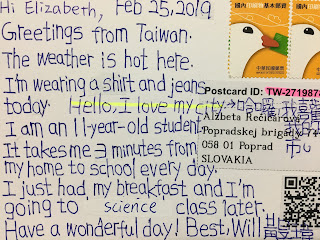 Hi Elizabeth, Feb 25, 2019
Greetings from Taiwan.
The weather is hot here.
I'm wearing a shirt and jeans
today. Hello, I love my city.→哈囉,我喜歡
I am an 11-year-old student.
It takes me 3 minutes from
my home to school every day.
I just had my breakfast and I'm
going to science class later.
Have a wonderful day! Best, Will
國內 基本郵資
國內 基本郵資
中華民國郵票
Postcard ID: TW-2719878
Alzbeta Rečičárová
Popradskej brigády
058 01 Poprad
SLOVAKIA